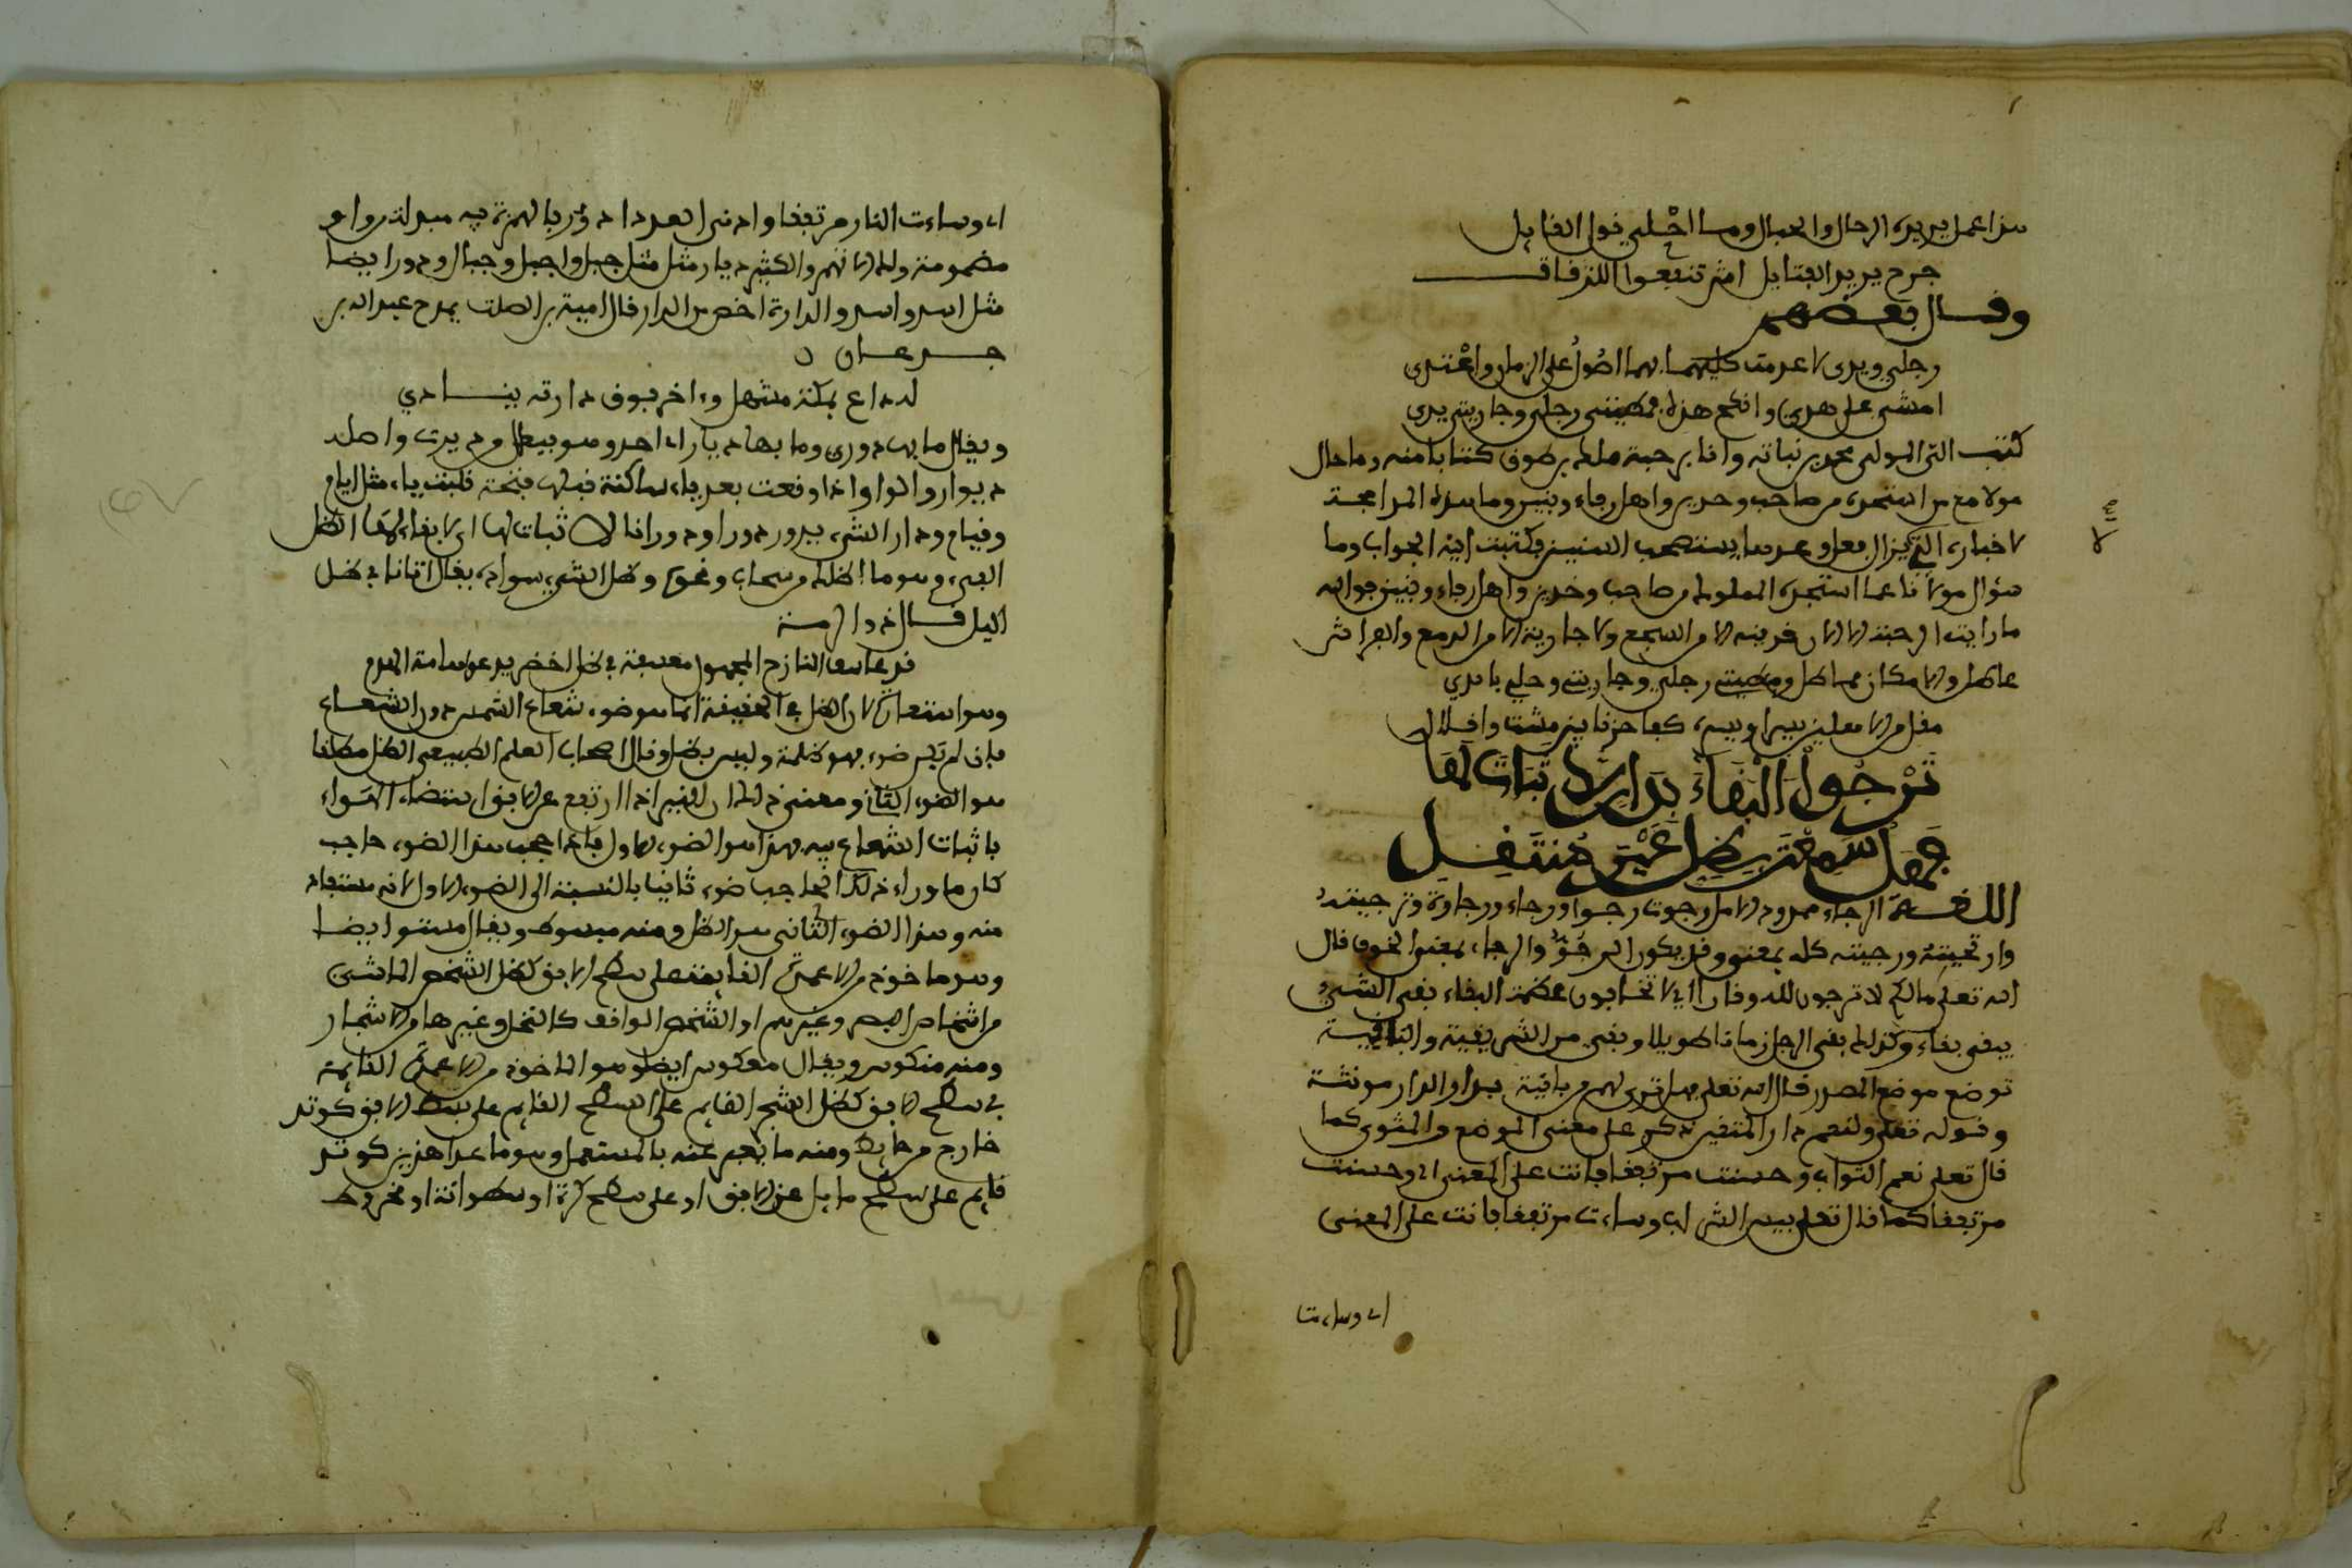 هذا عمل يريد الرحال والحبال وما احلى قول القايل
جرح يريد الفتايل اش تنفعوا اللزقاق
وقال بعضهم
رجلي ويدي لا عدمت كليهما بهما اصول على الزمان واعتدي
امشي على هذي وانكح هذه فمطيتي رجلي وجاريتي يدي
كتب الي المولى محمد بن نباتة وانا برحبة ملك بن طوق كتابا منه وما حال
مولانا مع من استجده من صاحب وخدين واهل رجاء وبنين وما هذه المراجعة
سؤال مولانا عما استجده المملوك من صاحب وخدين واهل رجاء وبنين فوالله
ما رايت الرحبة الا قرينه الا من السجع ولا جارية الا من الدمع والعرا ثر
عاطل والامكان مماطل ومطيتي رجلي وجاريتي وحلي بايدي
ترجوا البقاء بدار لا ثبات لها
فهل سمعت بظل غير منتقل
اللغة الرجاء ممدود الامل رجوت رجوا ورجاء ورجاوة وترجيته
وارتجيته ورجيته كله بمعنى وقد يكون الرجو والرجاء بمعنى الخوف قال
الله تعلى مالكم لا ترجون لله وقارا اي لا تخافون عظمة البقاء بقي الشيء
يبقى بقاء وكذلك بقي الرجل زمانا طويلا وبقي من الشيء بقية والباقية
توضع موضع المصدر قال الله تعلى فهل ترى لهم من باقية بدار الدار مونثة
وقوله تعلى ولنعم دار المتقين ذكر على معنى الموضع والمثوى كما
قال تعلى نعم الثواب وحسنت مرتفقا فانث على المعنى اي وحسنت
مرتفقا كما قال تعلى بيس الشراب وساءت مرتفقا فانث على المعنى
اي وساءت
اي وساءت النار مرتفقا وادنى العدد ادؤر بالهمزة فيه مبدلة من واو
مضمومة ولك ان لا تهمز والكثير ديار مثل جبل واجبل وجبال ودور ايضا
مثل اسد واسد والدارة اخص من الدار قال امية بن ابي الصلت يمدح عبد الله بن
جدعان
له داع بمكة مشمعل وءاخر فوق دارته ينادي
ويقال ما بها دوري وما بها ديار اي احد وهو فيعال من درت واصله
ديوار والواو اذا وقعت بعد ياء ساكنة قبلها فتحة قلبت ياء مثل ايام
وقيام ودار الشيء يدور دورا ودورانا لا ثبات لها اي لا بقاء لها الظل
الفيء وهو ما اظلك من سحاب ونحوه وظل الشيء سواده يقال اتانا في ظل
الليل قال ذو الرمة
قد اعسف النازح المجهول معسفه في ظل اخضر يدعو هامه البوم
وهو استعارة لان الظل في الحقيقة انما هو ضوء شعاع الشمس دون الشعاع
فاذا لم يكن ضوء فهو ظلمة وليس بظل وقال اصحاب العلم الطبيعي الظل مطلقا
هو الضوء الثاني ومعنى ذلك ان النير اذا ارتفع عن الافق استضاء الهواء
باثبات الشعاع فيه فهذا هو الضوء الاول فاذا حجب هذا الضوء حاجب
كان ما وراء ذلك الحاجب ضوء ثانيا بالنسبة الى الضوء الاول لانه مستفاد
منه وهذا الضوء الثاني هو الظل ومنه مبسوط ويقال مستو ايضا
وهو ماخوذ من الاعمدة القايمة على سطح الافق كظل الشخص الماشي
من اشخاص البشر وغيرهم او الشخص الواقف كالنخل وغيرها من الاشجار
ومنه منكوس ويقال معكوس ايضا وهو الماخوذ من الاعمدة القايمة
في سطح الافق كظل الشجر القايم على السطح القايم على بسط الافق كوتد
خارج من حايط ومنه ما يعبر عنه بالمستعمل وهو ما عدا هذين كوتد
قايم على سطح مايل عن الافق او على سطح كرة او اسطوانة او مخروط